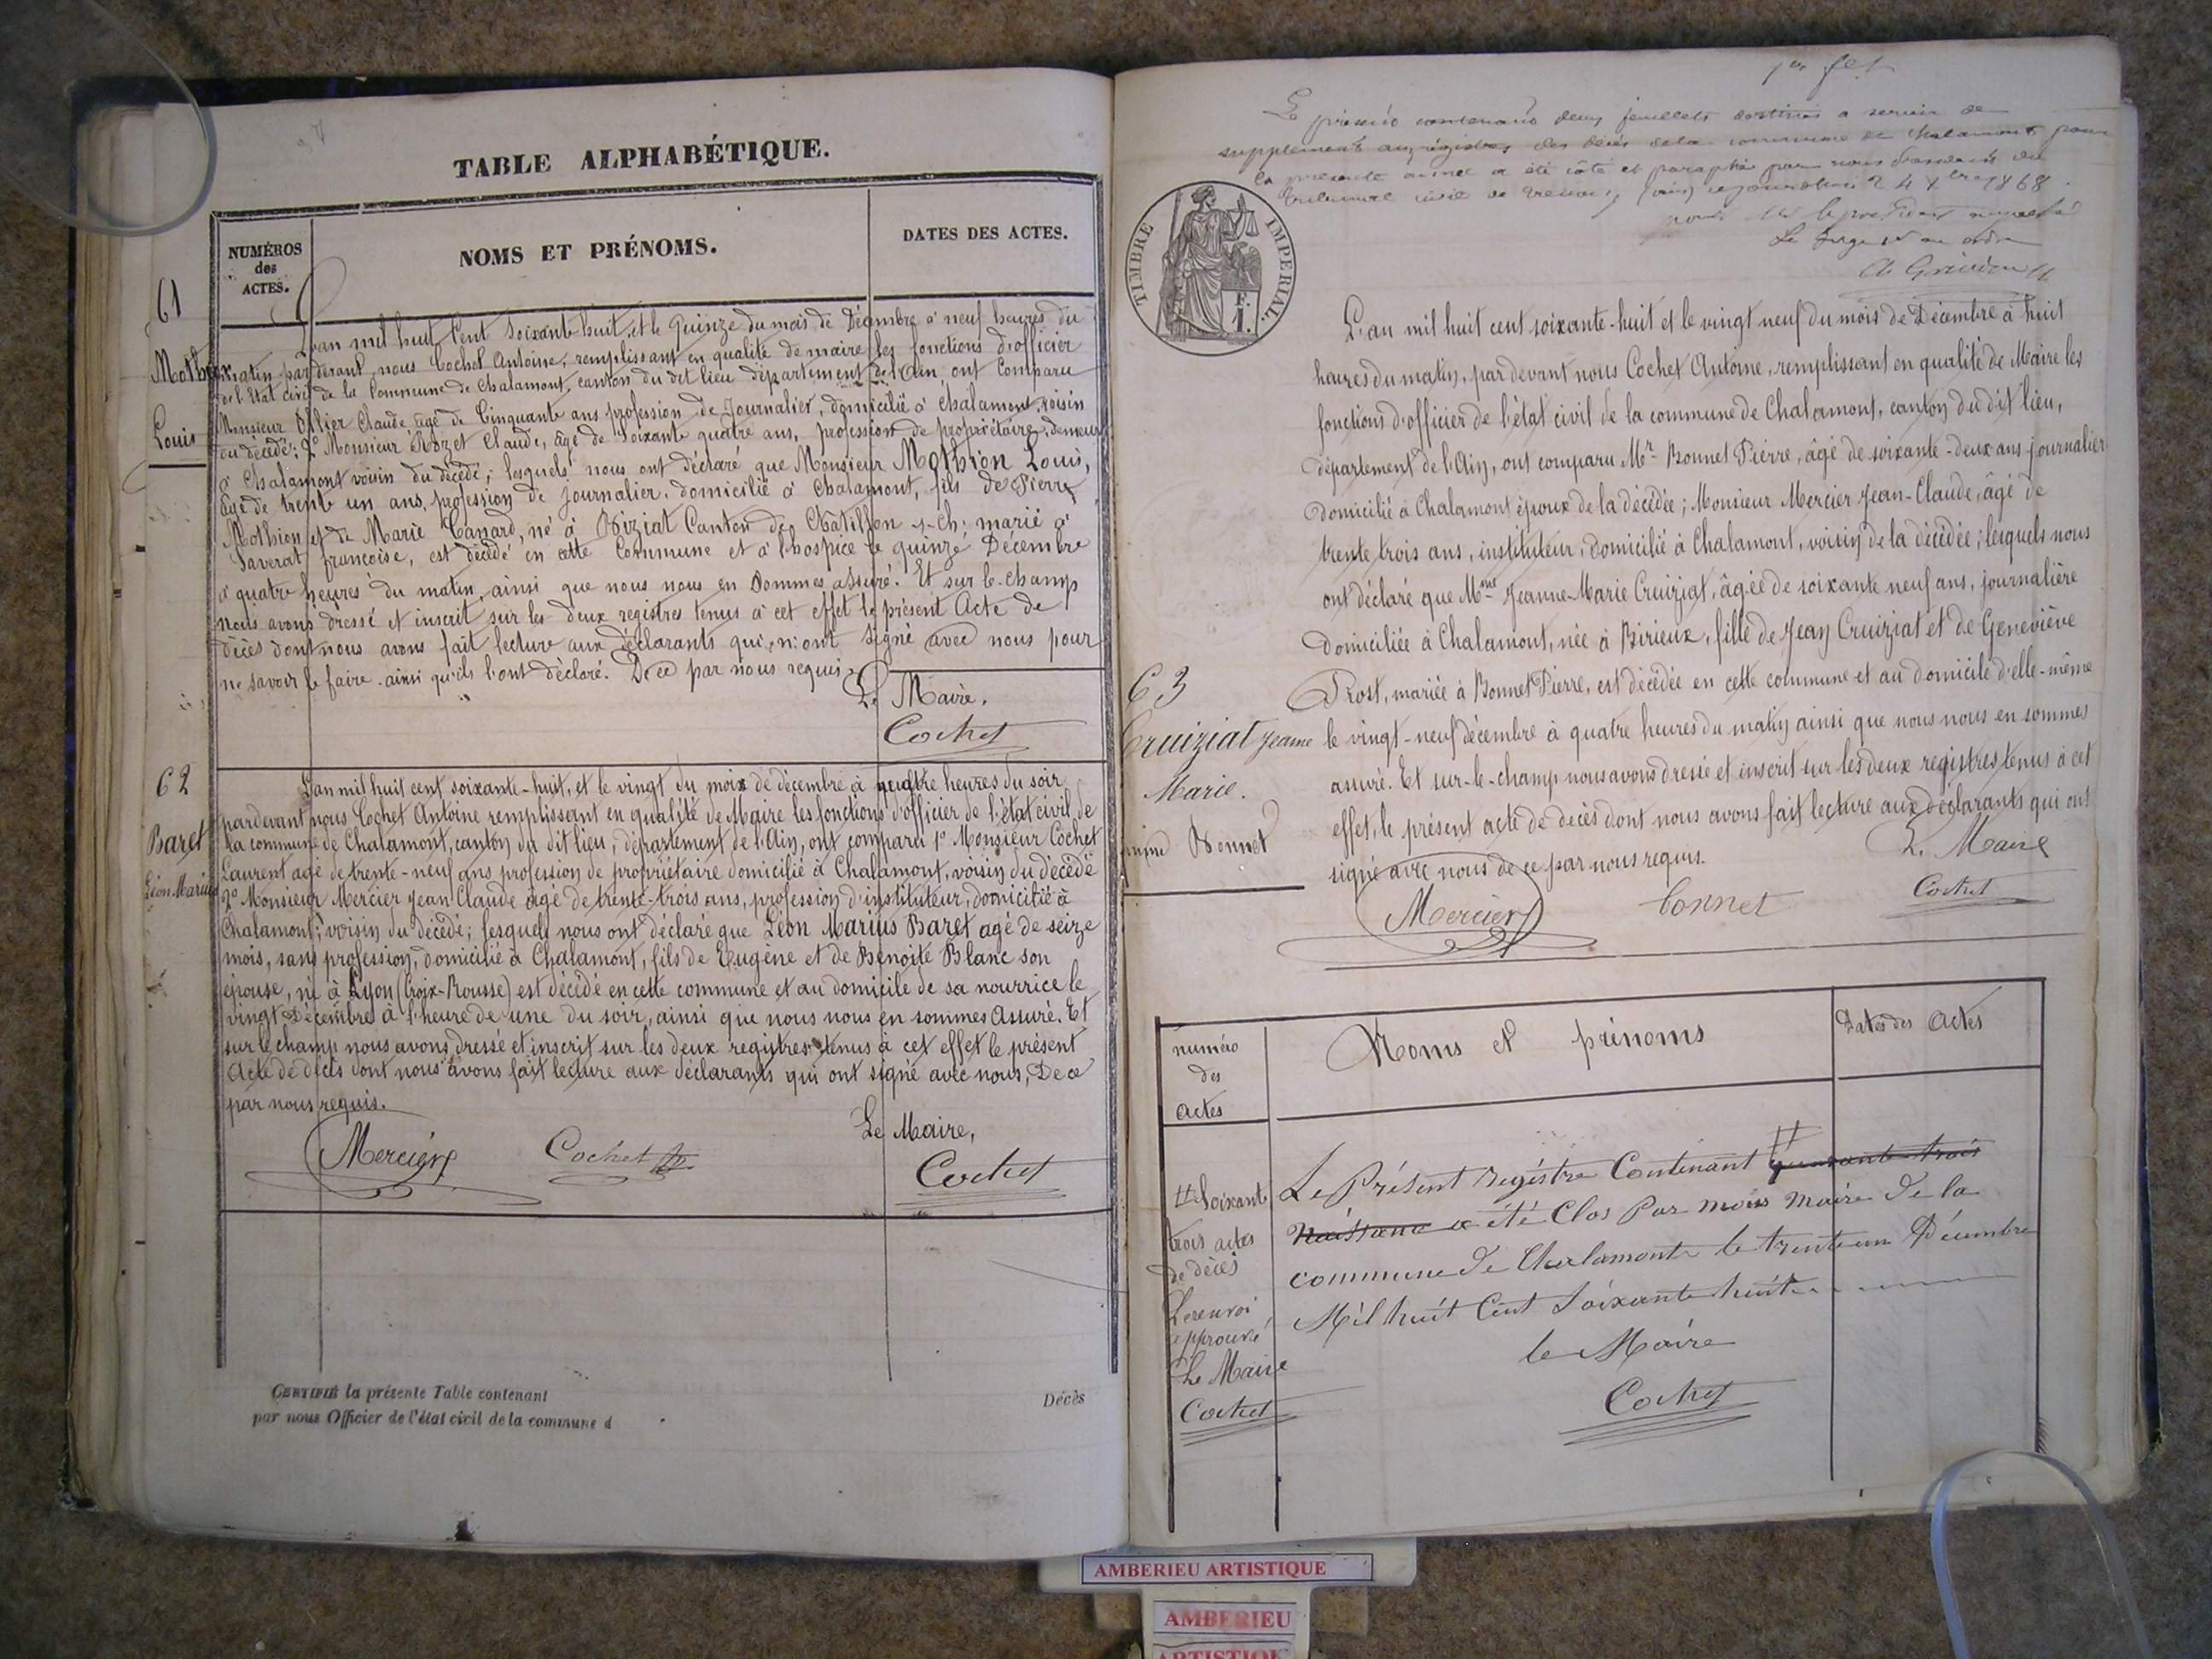 TABLE ALPHABÉTIQUE.
NUMÉROS
des
ACTES.
NOMS ET PRÉNOMS.
DATES DES ACTES.
61
Mothion
Louis
L'an mil huit Cent Soixante huit, et le Quinze du mois de Décembre à neuf heures du
matin pardevant nous Cochet Antoine, remplissant en qualité de maire les fonctions d'officier
de l'Etat civil de la Commune de Chalamont, canton du dit lieu département de l'Ain, ont comparu
Monsieur Ollier Claude âgé de Cinquante ans profession de Journalier, domicilié à Chalamont, voisin
du décédé; 2º Monsieur Rozet Claude, âgé de Soixante quatre ans, profession de propriétaire, demeur
à Chalamont voisin du décédé; lesquels nous ont déclaré que Monsieur Mothion Louis,
âgé de trente un ans, profession de journalier, domicilié à Chalamont, fils de Pierre
Mothion et de Marie Canard, né à Viziat Canton de Chatillon s-Ch; marié à
Saverat françoise, est décédé en cette Commune et à l'hospice le quinze Décembre
à quatre heures du matin, ainsi que nous nous en Sommes assuré. Et sur le-champ
nous avons dressé et inscrit sur les deux registres tenus à cet effet le présent Acte de
décès dont nous avons fait lecture aux déclarants qui n'ont signé avec nous pour
ne savoir le faire ainsi qu'ils l'ont déclaré. De ce par nous requis.
Le Maire.
Cochet
62
Baret
Léon Marius
L'an mil huit cent soixante-huit, et le vingt du mois de décembre à quatre heures du soir
pardevant nous Cochet Antoine remplissant en qualité de Maire les fonctions d'officier de l'état civil de
la commune de Chalamont, canton du dit lieu, département de l'Ain, ont comparu 1º Monsieur Cochet
Laurent agé de trente-neuf ans profession de propriétaire domicilié à Chalamont, voisin du décédé
2º Monsieur Mercier Jean Claude âgé de trente-trois ans, profession d'instituteur, domicilié à
Chalamont, voisin du décédé; lesquels nous ont déclaré que Léon Marius Baret agé de seize
mois, sans profession, domicilié à Chalamont, fils de Eugène et de Benoite Blanc son
épouse, né à Lyon (Croix-Rousse) est décédé en cette commune et au domicile de sa nourrice le
vingt Décembre à l'heure de une du soir, ainsi que nous nous en sommes assuré. Et
sur le champ nous avons dressé et inscrit sur les deux registres tenus à cet effet le présent
Acte de décès dont nous avons fait lecture aux déclarants qui ont signé avec nous, De ce
par nous requis.
Le Maire,
Mercier
Cochet
Cochet
CERTIFIÉ la présente Table contenant
Décès
par nous Officier de l'état civil de la commune d
1er fet
Le présent contenant deux feuillets destinés a servir de
supplement aux régistres des décès de la commune de Chalamont pour
la présente année a été coté et paraphé par nous Président du
tribunal civil de Trévoux, (ain) ce jourd'hui 24 Xbre 1868.
pour le président empeché
Le Juge
TIMBRE IMPERIAL.
F.
1.
L'an mil huit cent soixante-huit et le vingt neuf du mois de Décembre à huit
heures du matin, par devant nous Cochet Antoine, remplissant en qualité de Maire les
fonctions d'officier de l'état civil de la commune de Chalamont, canton du dit lieu,
département de l'Ain, ont comparu Mr Bonnet Pierre, âgé de soixante-deux ans journalier
domicilié à Chalamont époux de la décédée; Monsieur Mercier Jean-Claude, âgé de
trente trois ans, instituteur, domicilié à Chalamont, voisin de la décédée; lesquels nous
ont déclaré que Mme Jeanne-Marie Cruiziat, âgée de soixante neuf ans, journalière
Domiciliée à Chalamont, née à Birieux, fille de Jean Cruiziat et de Geneviève
Prost, mariée à Bonnet Pierre, est décédée en cette commune et au domicile d'elle-même
le vingt-neuf décembre à quatre heures du matin ainsi que nous nous en sommes
assuré. Et sur-le-champ nous avons dressé et inscrit sur les deux registres tenus à cet
effet, le présent acte de décès dont nous avons fait lecture aux déclarants qui ont
signé avec nous de ce par nous requis.
63
Cruiziat Jeanne
Marie.
Bonnet
Le Maire
Mercier
Bonnet
Cochet
numéro
des
actes
Noms et prénoms
Dates des Actes
Le Présent registre Contenant # quarante trois
naissance a été Clos Par nous maire de la
commune de Chalamont le trente un Décembre
Mil huit Cent Soixante huit
le Maire
Cochet
# Soixante
trois actes
de décès
Le renvoi
approuvé
Le Maire
Cochet
AMBERIEU ARTISTIQUE
AMBERIEU
ARTISTIQUE